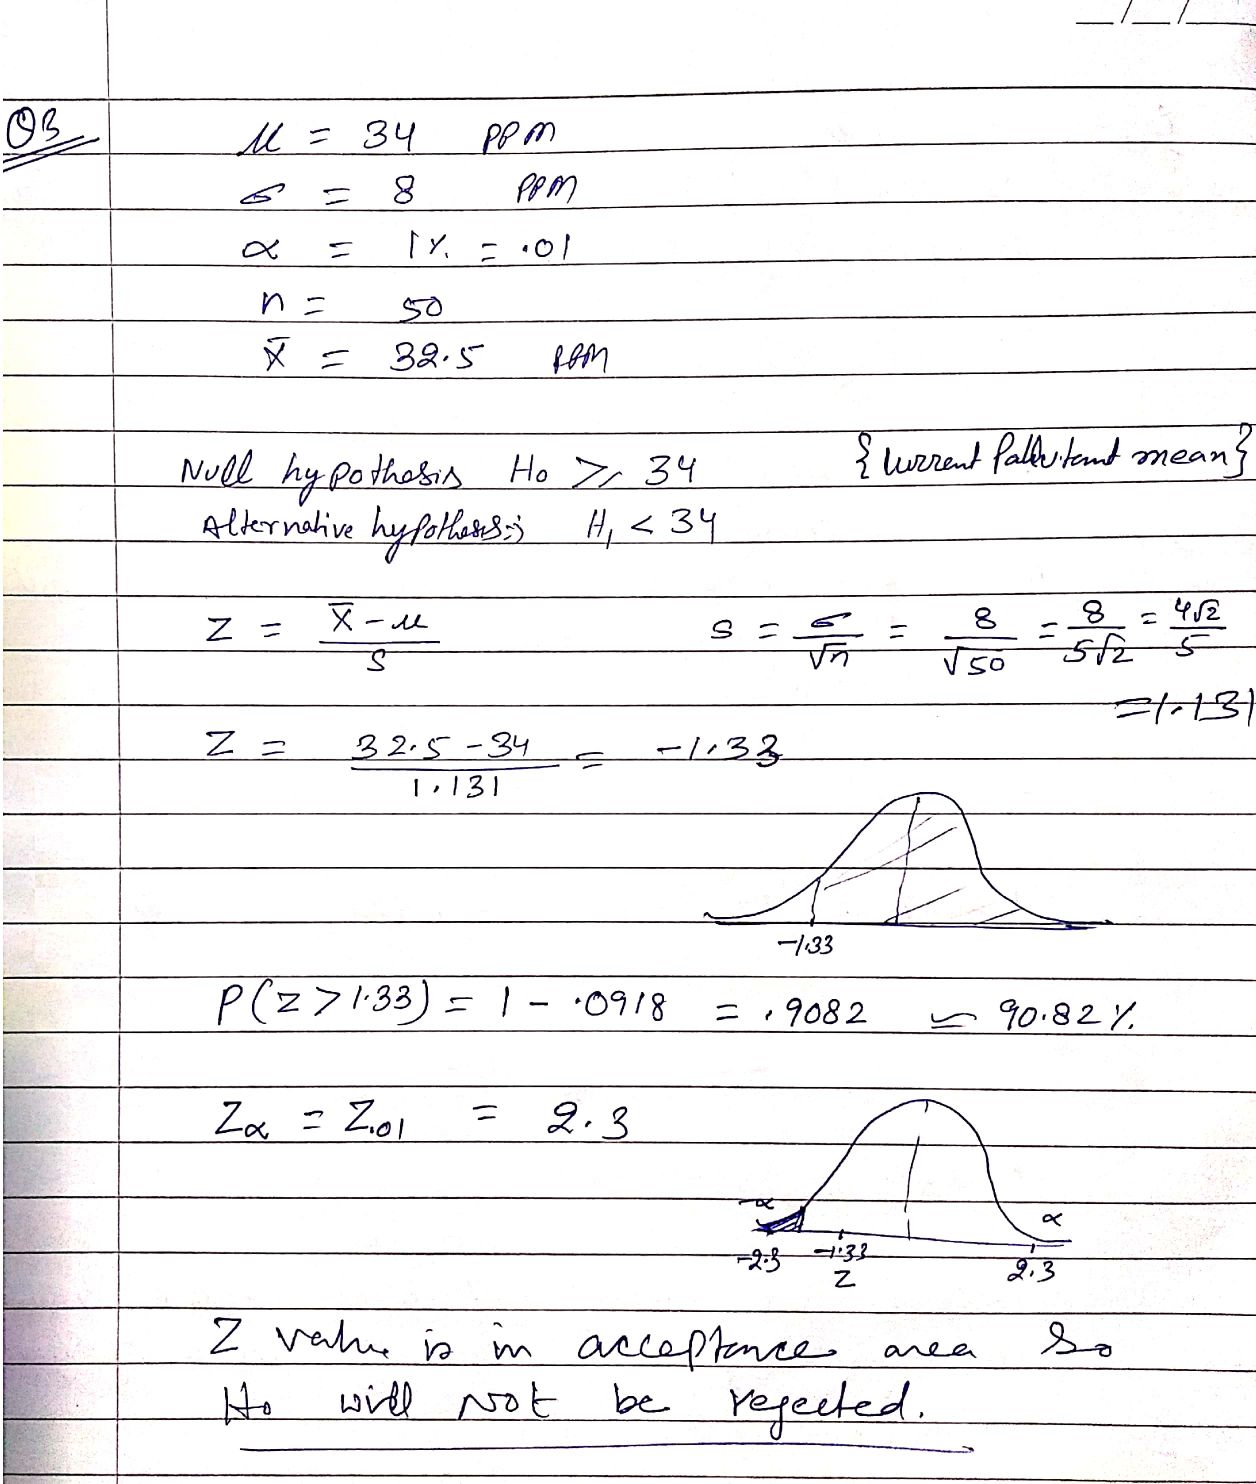 Q3
μ = 34 PPM
σ = 8 PPM
α = 1% = .01
n = 50
x̄ = 32.5 PPM
Null hypothesis Ho ≥ 34 { Current Pallutant mean }
Alternative hypothesis:; H₁ < 34
Z = (x̄ - μ)/S S = σ/√n = 8/√50 = 8/5√2 = 4√2/5
= 1.131
Z = (32.5 - 34)/1.131 = -1.33
-1.33
P(Z > 1.33) = 1 - .0918 = .9082 ≃ 90.82 %.
Zα = Z.01 = 2.3
-α α
-2.3 -1.33 2.3
Z
Z value is in acceptance area So
Ho will Not be rejected.